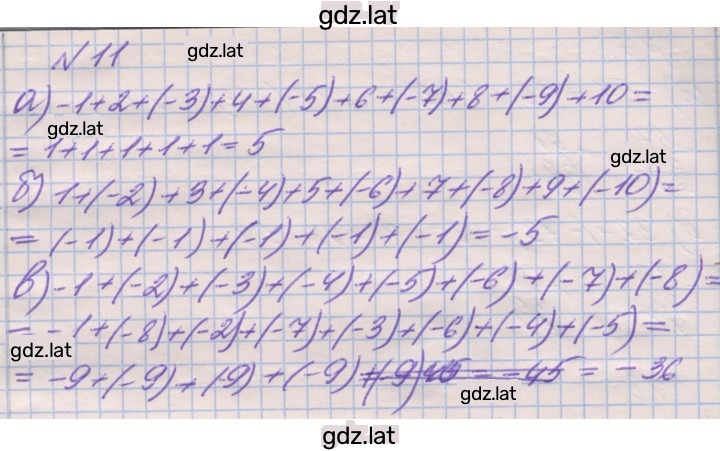 gdz.lat
№11
gdz.lat
а) -1+2+(-3)+4+(-5)+6+(-7)+8+(-9)+10=
gdz.lat
= 1+1+1+1+1=5
gdz.lat
б) 1+(-2)+3+(-4)+5+(-6)+7+(-8)+9+(-10)=
= (-1)+(-1)+(-1)+(-1)+(-1)=-5
в) -1+(-2)+(-3)+(-4)+(-5)+(-6)+(-7)+(-8)=
= -1+(-8)+(-2)+(-7)+(-3)+(-6)+(-4)+(-5)=
gdz.lat
= -9+(-9)+(-9)+(-9) = -36
gdz.lat
gdz.lat